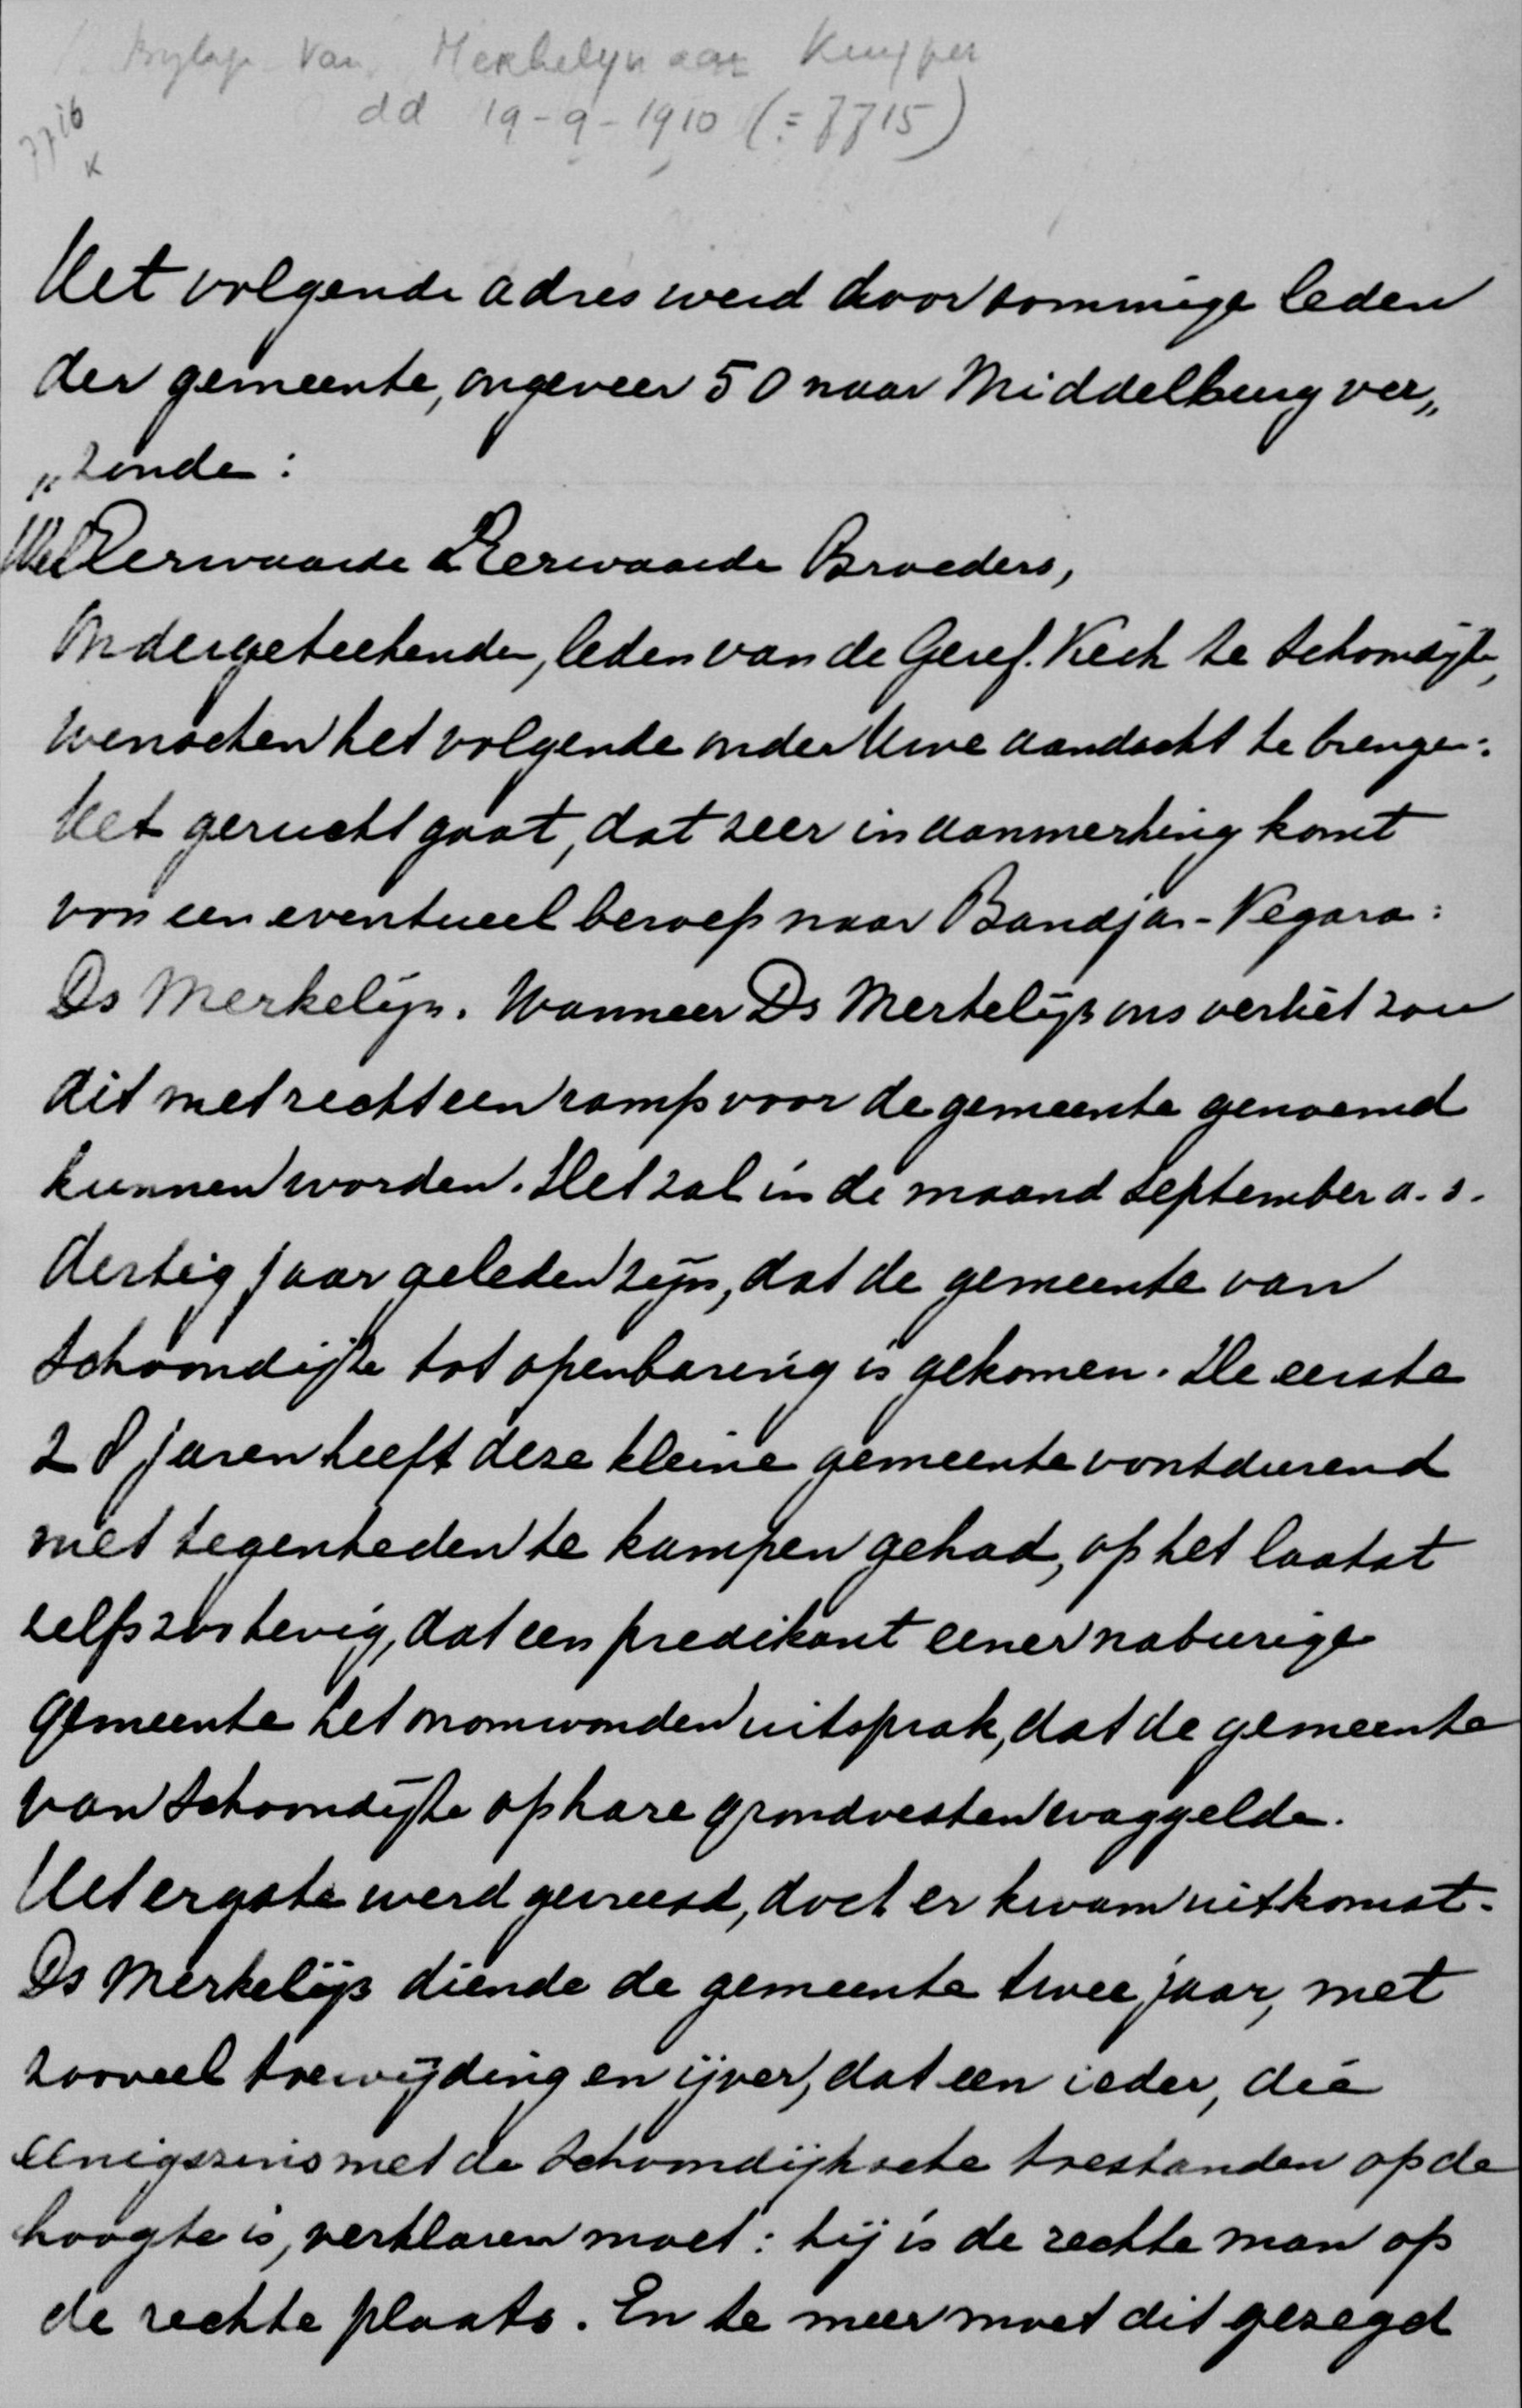 Bylage van Merkelyn aan Kuyper
dd 19-9-1910 (=7715)
7716
x
Het volgende adres werd door sommige leden
der gemeente, ongeveer 50 naar Middelburg ver„
„zonde:
WelEerwaarde & Eerwaarde Broeders,
Ondergeteekenden, leden van de Geref. Kerk te Schoondijke,
wenschen het volgende onder Uwe aandacht te brengen:
Het gerucht gaat, dat zeer in aanmerking komt
voor een eventueel beroep naar Bandjar-Negara:
Ds Merkelijn. Wanneer Ds Merkelijn ons verliet zou
dit met recht een ramp voor de gemeente genoemd
kunnen worden. Het zal in de maand September a.s.
dertig jaar geleden zijn, dat de gemeente van
Schoondijke tot openbaring is gekomen. De eerste
28 jaren heeft deze kleine gemeente voortdurend
met tegenheden te kampen gehad, op het laatst
zelfs zoo hevig, dat een predikant eener naburige
gemeente het onomwonden uitsprak, dat de gemeente
van Schoondijke op hare grondvesten waggelde.
Het ergste werd gevreesd, doch er kwam uitkomst.
Ds Merkelijn diende de gemeente twee jaar, met
zooveel toewijding en ijver, dat een ieder, die
eenigszins met de Schoondijksche toestanden op de
hoogte is, verklaren moet: hij is de rechte man op
de rechte plaats. En te meer moet dit gezegd